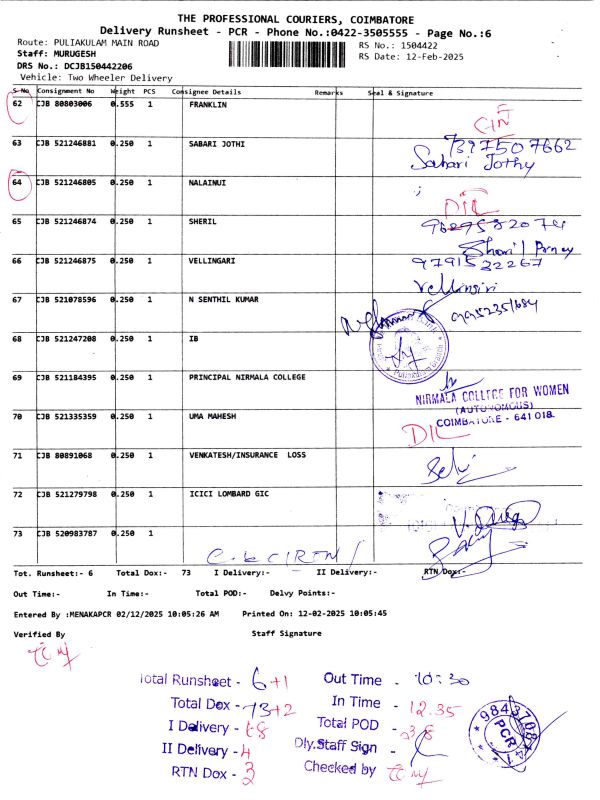 THE PROFESSIONAL COURIERS, COIMBATORE
Delivery Runsheet - PCR - Phone No.:0422-3505555 - Page No.:6
Route: PULIAKULAM MAIN ROAD RS No.: 1504422
Staff: MURUGESH RS Date: 12-Feb-2025
DRS No.: DCJB150442206
Vehicle: Two Wheeler Delivery
S No Consignment No Weight PCS Consignee Details Remarks Seal & Signature
62 CJB 80803006 0.555 1 FRANKLIN
63 CJB 521246881 0.250 1 SABARI JOTHI 7397507662
Sabari Jothy
64 CJB 521246805 0.250 1 NALAINUI
D/L
65 CJB 521246874 0.250 1 SHERIL
66 CJB 521246875 0.250 1 VELLINGARI 9791532267
Vellingiri
67 CJB 521078596 0.250 1 N SENTHIL KUMAR
68 CJB 521247208 0.250 1 IB
Puliakulam Branch
69 CJB 521184395 0.250 1 PRINCIPAL NIRMALA COLLEGE
NIRMALA COLLEGE FOR WOMEN
(AUTONOMOUS)
COIMBATORE - 641 018.
70 CJB 521335359 0.250 1 UMA MAHESH
D/L
71 CJB 80891068 0.250 1 VENKATESH/INSURANCE LOSS
Selvi
72 CJB 521279798 0.250 1 ICICI LOMBARD GIC
73 CJB 520983787 0.250 1
Tot. Runsheet:- 6 Total Dox:- 73 I Delivery:- II Delivery:- RTN Dox:-
Out Time:- In Time:- Total POD:- Delvy Points:-
Entered By :MENAKAPCR 02/12/2025 10:05:26 AM Printed On: 12-02-2025 10:05:45
Verified By Staff Signature
Total Runsheet - 6+1 Out Time - 10:30
Total Dox - 73+2 In Time - 12.35
I Delivery - 68 Total POD -
II Delivery - 4 Dly.Staff Sign -
RTN Dox - 3 Checked by
PCR